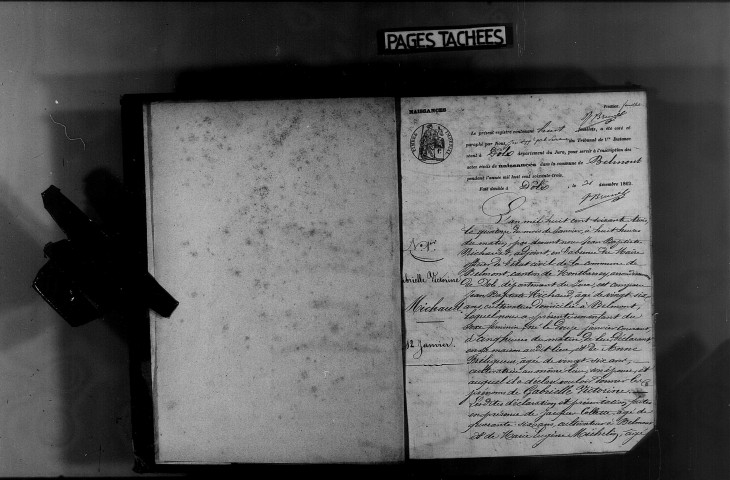 PAGES TACHÉES
NAISSANCES
Premier feuillet
Le présent registre contenant huit feuillets, a été coté et
paraphé par Nous, du Tribunal de 1re Instance
séant à Dôle département du Jura, pour servir à l'inscription des
actes civils de naissances dans la commune de Belmont
pendant l'année mil huit cent soixante-trois.
Fait double à Dôle, le décembre 1862.
L'an mil huit cent soixante trois,
le quinze du mois de Janvier, à huit heures
du matin, par devant nous Jean Baptiste
adjoint, en l'absence du Maire
officier de l'état civil de la commune de
Belmont, canton de Montbarrey, arrondissement
de Dole, département du Jura, est comparu
Jean Baptiste Michaud, âgé de vingt six
ans, cultivateur domicilié à Belmont,
lequel nous a présenté un enfant du
sexe féminin, né le douze janvier courant,
à cinq heures du matin de lui déclarant
en sa maison audit lieu, et de Anne
âgée de vingt six ans,
cultivatrice au même lieu, son épouse, et
auquel il a déclaré vouloir donner les
prénoms de Gabrielle Victorine.
Lesdites déclaration et présentation faites
en présence de Jacques âgé de
soixante ans, cultivateur à Belmont
et de Marie Eugène Michelin, âgé
No 1er
Gabrielle Victorine
Michaud
12 Janvier